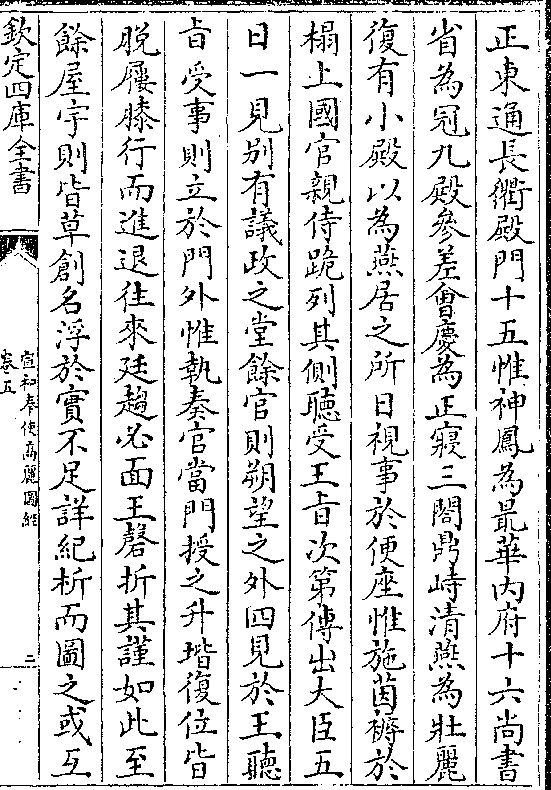 正東通長衢殿門十五惟神鳳為最華内府十六尚書
省為冠九殿參差會慶為正寢三閣鼎峙清燕為壯麗
復有小殿以為燕居之所日視事於便座惟施茵褥於
榻上國官親侍跪列其側聽受王㫖次第傳出大臣五
日一見别有議政之堂餘官則朔望之外四見於王聽
㫖受事則立於門外惟執奏官當門授之升堦復位皆
脱屨膝行而進退往來廷趨必面王磬折其謹如此至
餘屋宇則皆草創名浮於實不足詳紀析而圖之或互
欽定四庫全書
宣和奉使高麗圖經
卷五
三